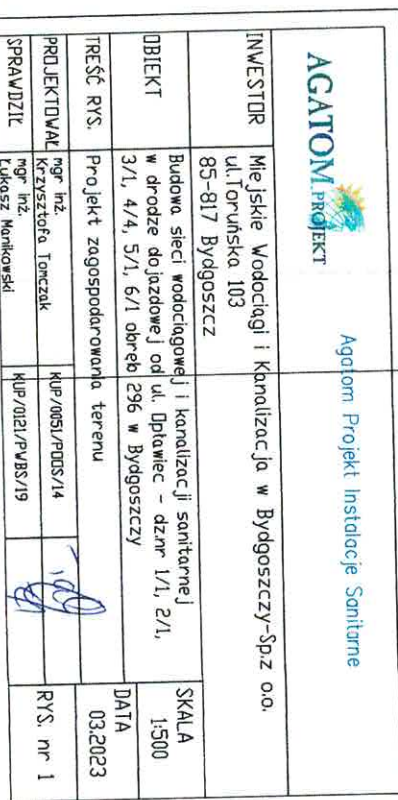 AGATOM PROJEKT
Agatom Projekt Instalacje Sanitarne
INWESTOR
Miejskie Wodociągi i Kanalizacja w Bydgoszczy-Sp.z o.o.
ul.Toruńska 103
85-817 Bydgoszcz
OBIEKT
Budowa sieci wodociągowej i kanalizacji sanitarnej
w drodze dojazdowej od ul. Opławiec - dz.nr 1/1, 2/1,
3/1, 4/4, 5/1, 6/1 obręb 296 w Bydgoszczy
SKALA
1:500
TREŚĆ RYS.
Projekt zagospodarowania terenu
DATA
03.2023
PROJEKTOWAŁ
mgr inż.
Krzysztofa Tomczak
KUP/0051/POOS/14
RYS. nr 1
SPRAWDZIŁ
mgr inż.
Łukasz Manikowski
KUP/0121/PWBS/19